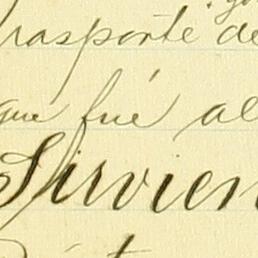 rasporte de
que fué al
Sirvien